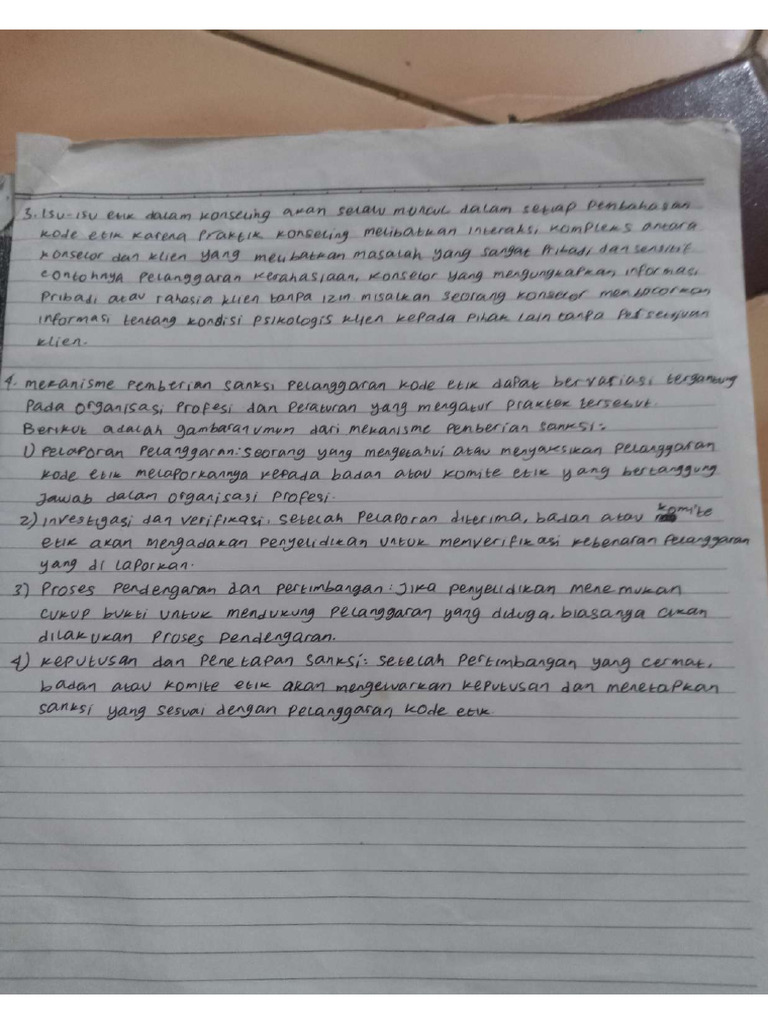 3. Isu-isu etik dalam konseling akan selalu muncul dalam setiap pembahasan
kode etik karena praktik konseling melibatkan interaksi kompleks antara
konselor dan klien yang melibatkan masalah yang sangat pribadi dan sensitif
contohnya pelanggaran kerahasiaan, konselor yang mengungkapkan informasi
pribadi atau rahasia klien tanpa izin. misalkan seorang konselor membocorkan
informasi tentang kondisi psikologis klien kepada pihak lain tanpa persetujuan
klien.
4. mekanisme pemberian sanksi pelanggaran kode etik dapat bervariasi tergantung
pada organisasi profesi dan peraturan yang mengatur praktek tersebut.
Berikut adalah gambaran umum dari mekanisme pemberian sanksi:
1) pelaporan pelanggaran: seorang yang mengetahui atau menyaksikan pelanggaran
kode etik melaporkannya kepada badan atau komite etik yang bertanggung
jawab dalam organisasi profesi.
2) investigasi dan verifikasi, setelah pelaporan diterima, badan atau komite
etik akan mengadakan penyelidikan untuk memverifikasi kebenaran pelanggaran
yang di laporkan.
3) proses pendengaran dan pertimbangan: jika penyelidikan menemukan
cukup bukti untuk mendukung pelanggaran yang diduga, biasanya akan
dilakukan proses pendengaran.
4) keputusan dan penetapan sanksi: setelah pertimbangan yang cermat,
badan atau komite etik akan mengeluarkan keputusan dan menetapkan
sanksi yang sesuai dengan pelanggaran kode etik.